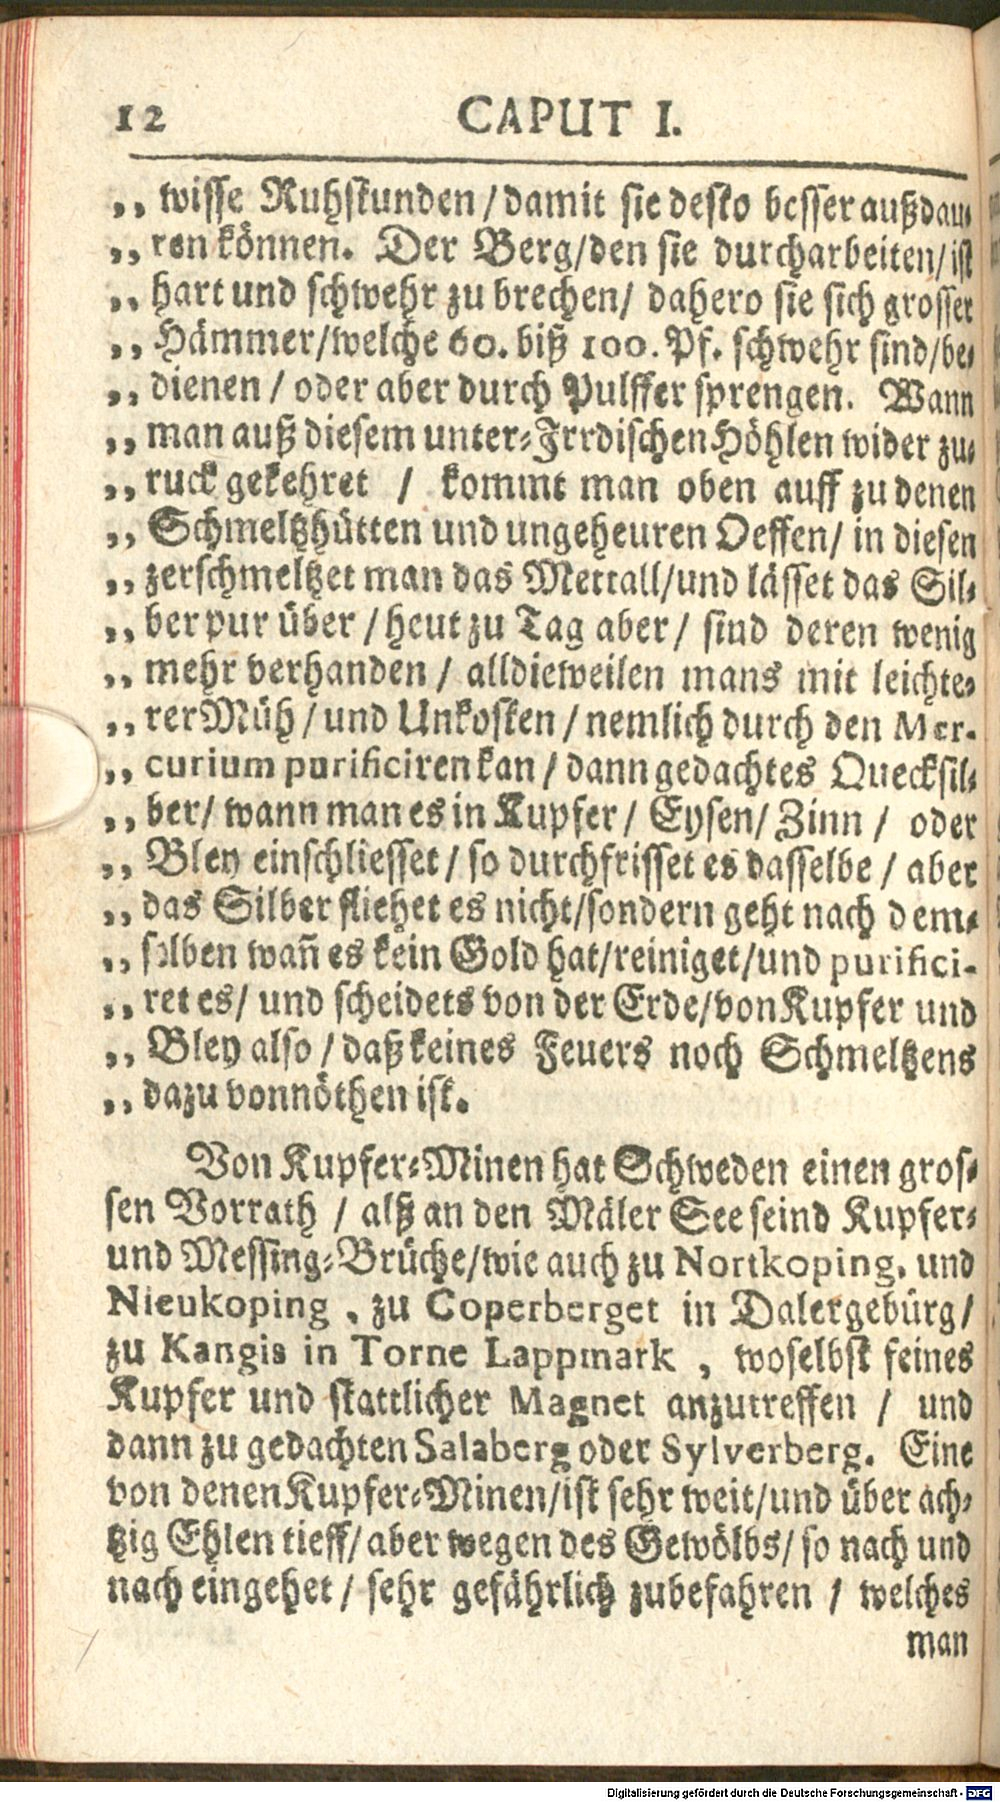 12 CAPUT I.
„ wisse Ruhstunden / damit sie desto besser außdau-
„ ren können. Der Berg/den sie durcharbeiten/ist
„ hart und schwehr zu brechen/ dahero sie sich grosser
„ Hämmer/welche 60. biß 100. Pf. schwehr sind/be-
„ dienen / oder aber durch Pulffer sprengen. Wann
„ man auß diesem unter-Irrdischen Höhlen wider zu-
„ ruck gekehret / kommt man oben auff zu denen
„ Schmeltzhütten und ungeheuren Oeffen/ in diesen
„ zerschmeltzet man das Mettall/und lässet das Sil-
„ ber pur über / heut zu Tag aber / sind deren wenig
„ mehr verhanden / alldieweilen mans mit leichte-
„ rer Müh / und Unkosten / nemlich durch den Mer-
„ curium purificiren kan / dann gedachtes Quecksil-
„ ber/ wann man es in Kupfer / Eysen/ Zinn / oder
„ Bley einschliesset / so durchfrisset es dasselbe / aber
„ das Silber fliehet es nicht/sondern geht nach dem-
„ selben wañ es kein Gold hat/reiniget/und purifici-
„ ret es/ und scheidets von der Erde/von Kupfer und
„ Bley also / daß keines Feuers noch Schmeltzens
„ dazu vonnöthen ist.
Von Kupfer-Minen hat Schweden einen gros-
sen Vorrath / alß an den Mäler See seind Kupfer-
und Messing-Brüche/wie auch zu Nortkoping, und
Nieukoping, zu Coperberget in Dalergebürg/
zu Kangis in Torne Lappmark, woselbst feines
Kupfer und stattlicher Magnet anzutreffen / und
dann zu gedachten Salaberg oder Sylverberg. Eine
von denen Kupfer-Minen/ist sehr weit/und über ach-
tzig Ehlen tieff/ aber wegen des Gewölbs/ so nach und
nach eingehet / sehr gefährlich zubefahren / welches
man
Digitalisierung gefördert durch die Deutsche Forschungsgemeinschaft - DFG